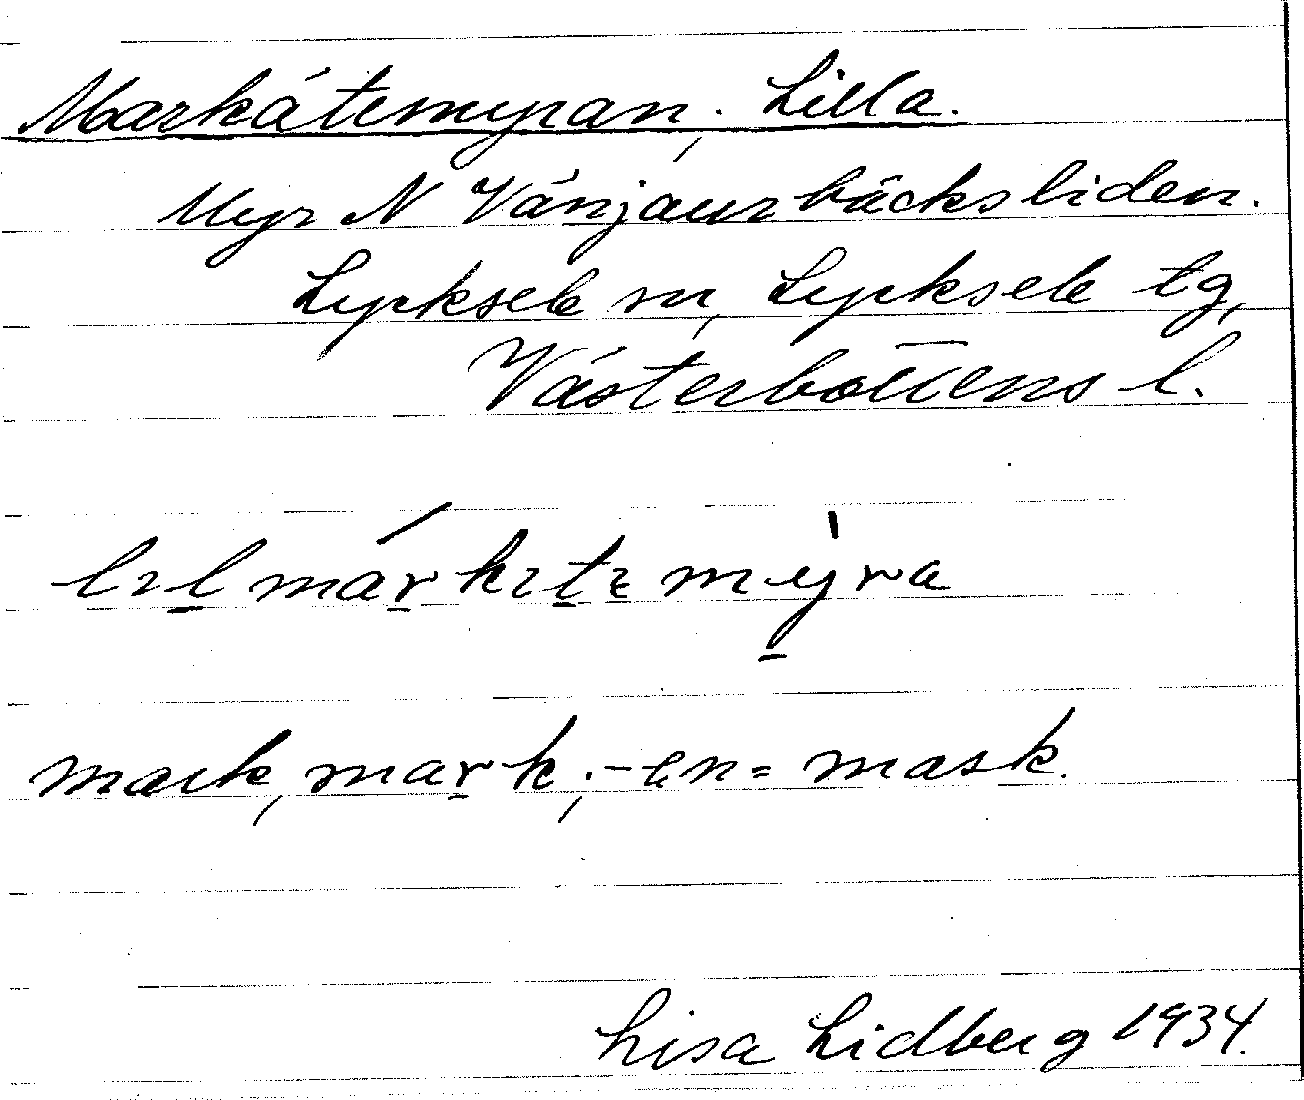 Markätemyran, Lilla.
Myr N Vänjaurbäcksliden.
Lycksele sn, Lycksele tg,
Västerbottens l.
mark, mark, -en = mask.
Lisa Lidberg 1934.